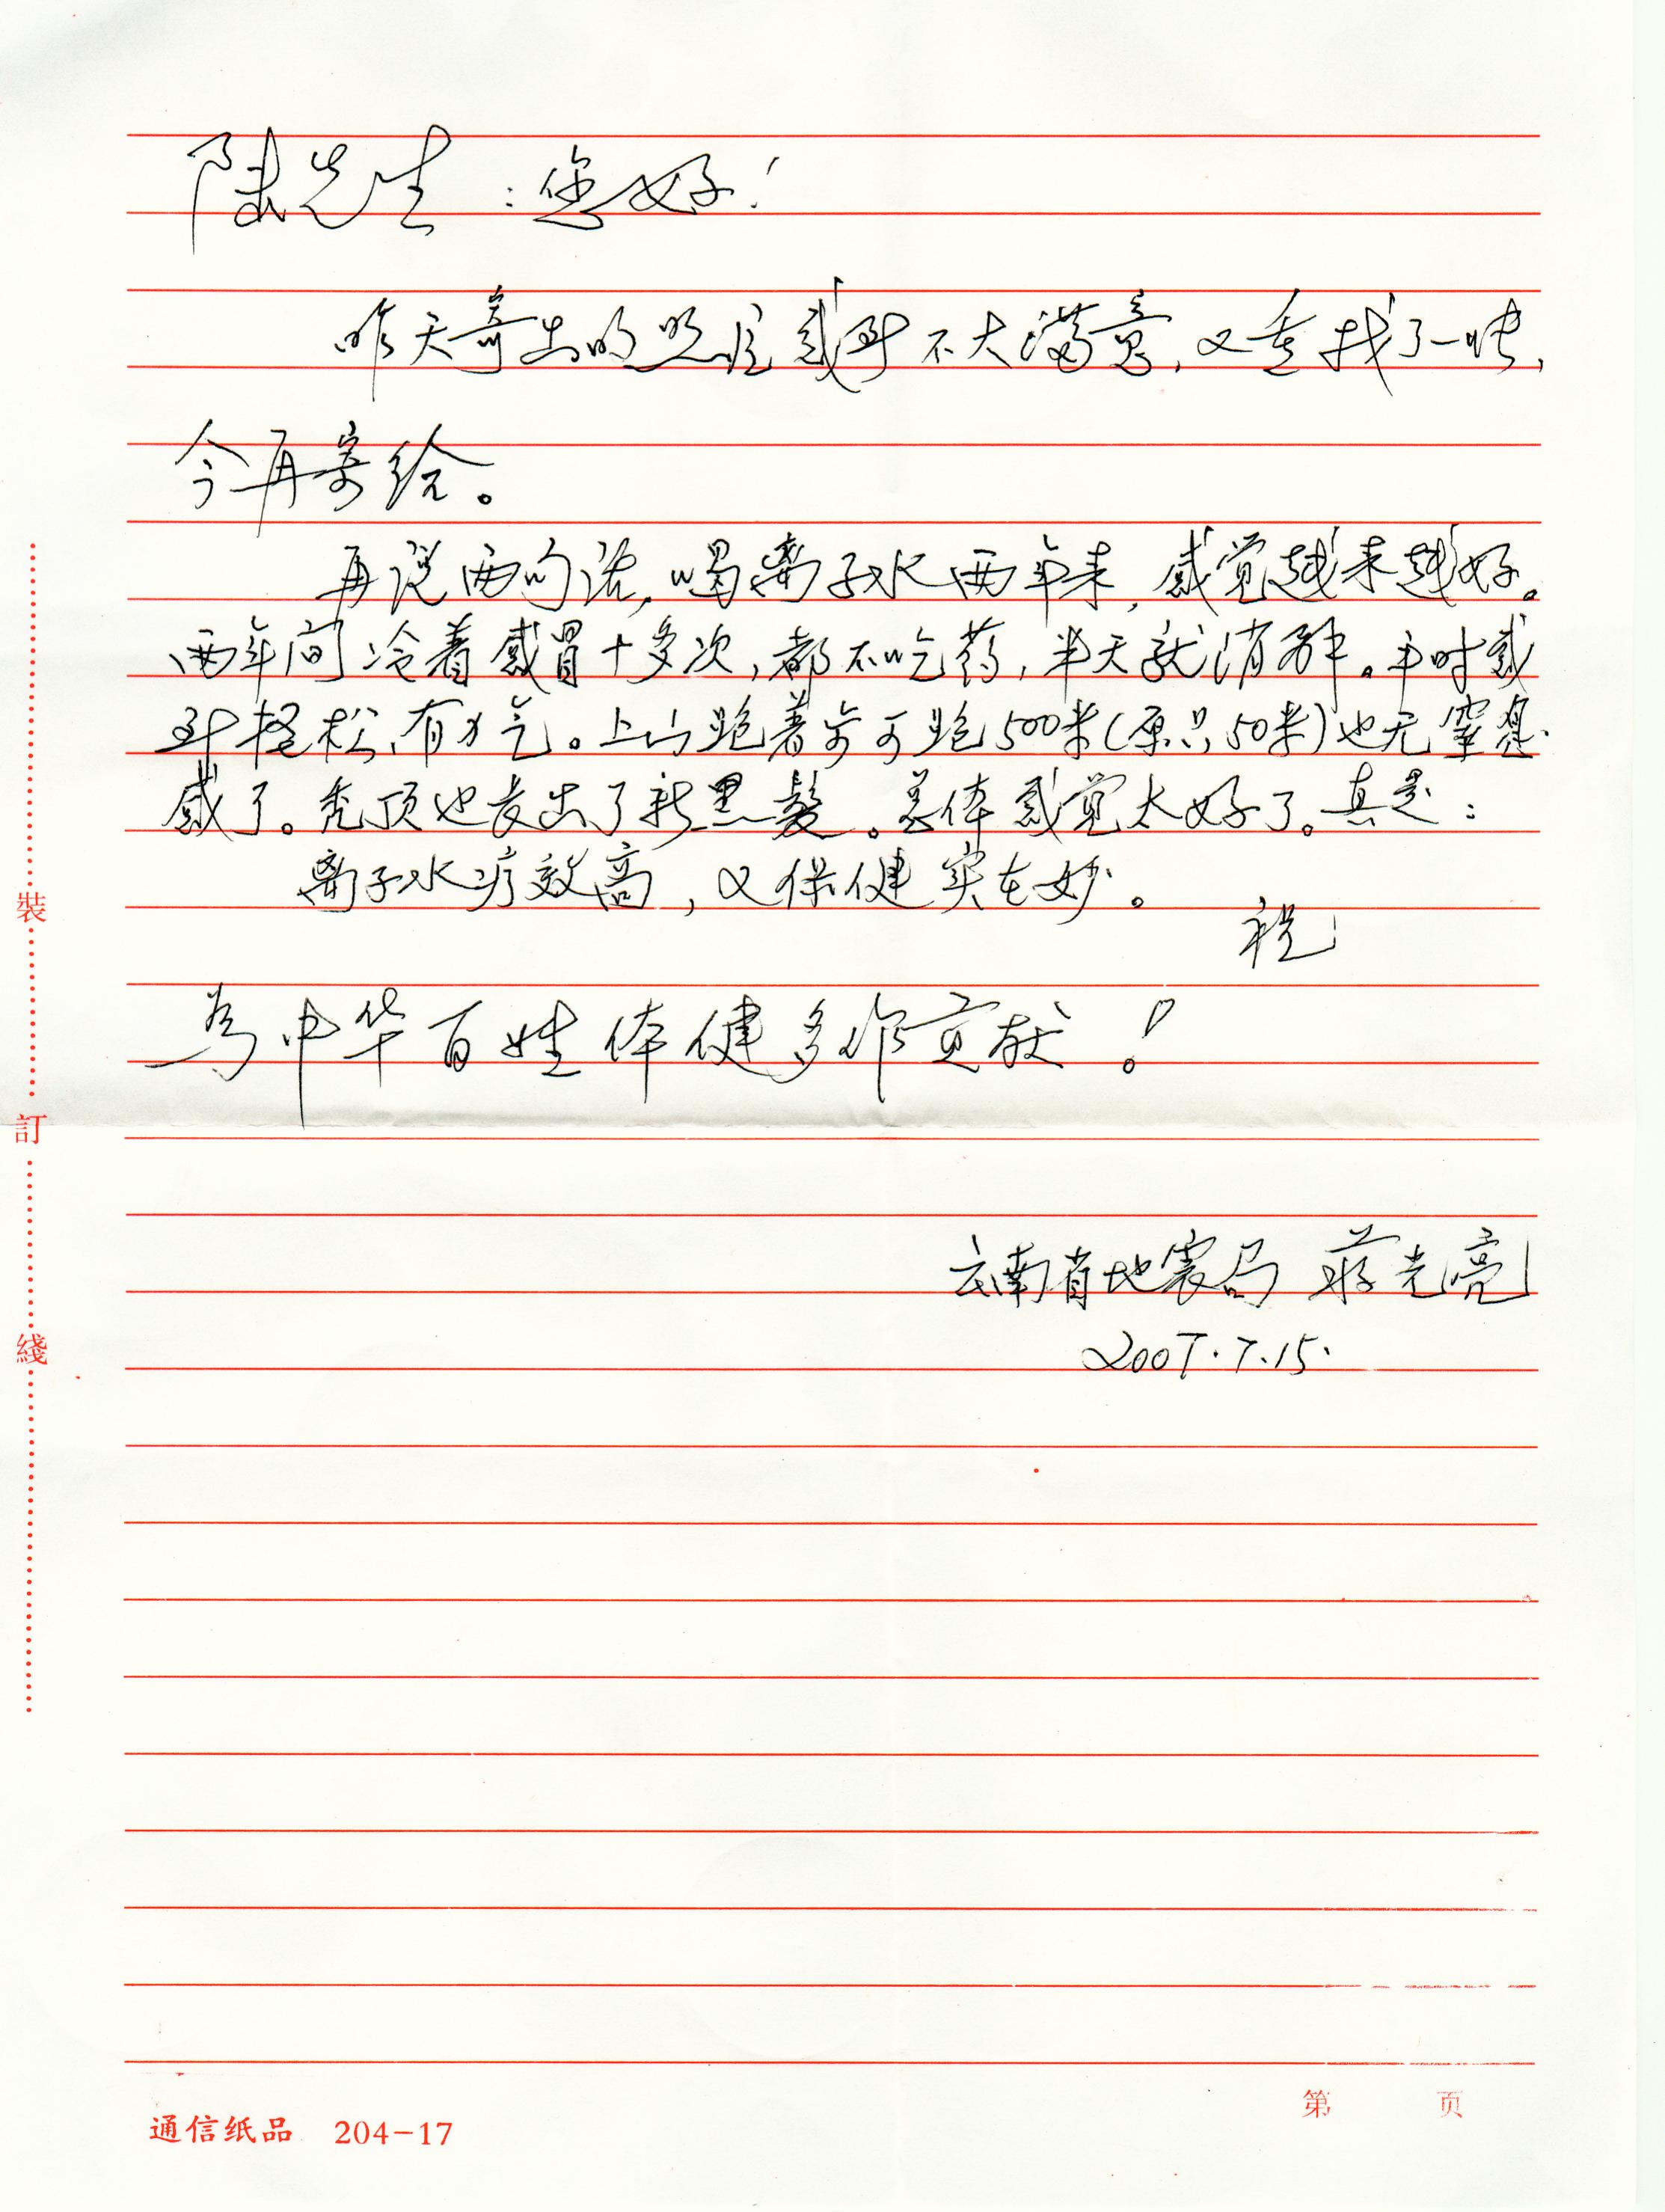 陆先生：您好！
昨天寄出的照片感到不大满意，又重找了一张，
今再寄给。
再说两句话，喝离子水两年来，感觉越来越好。
两年间冷着感冒十多次，都不吃药，半天就消解。平时感
到轻松、有力气。上山跑着步可跑500米（原只50米）也无窒息
感了。秃顶也长出了新黑髮。总体感觉太好了。真是：
离子水疗效高，又保健实在妙。
祝
为中华百姓体健多作贡献！
云南省地震局 蒋光亮
2007.7.15.
裝
訂
綫
第 页
通信纸品 204-17